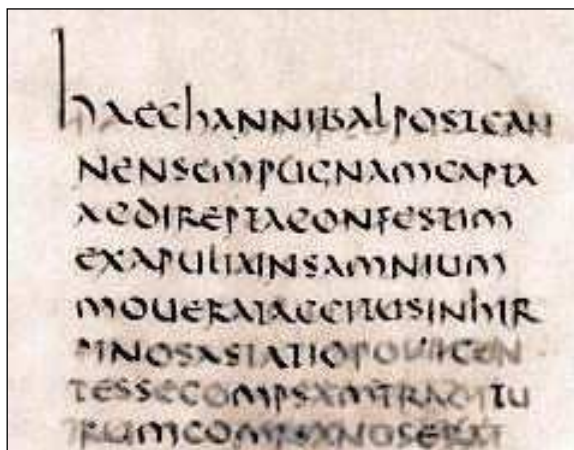 hAEChANNIBALPOSTCAN
NENSEMPUGNAMCAPTA
ACDIREPTACONFESTIM
EXAPULIAINSAMNIUM
MOUERATACCITUSINHIR
PINOSASTATIOPOLLICEN
TESSECOMPSAMTRADITU
RUMCOMPSANOSERAT